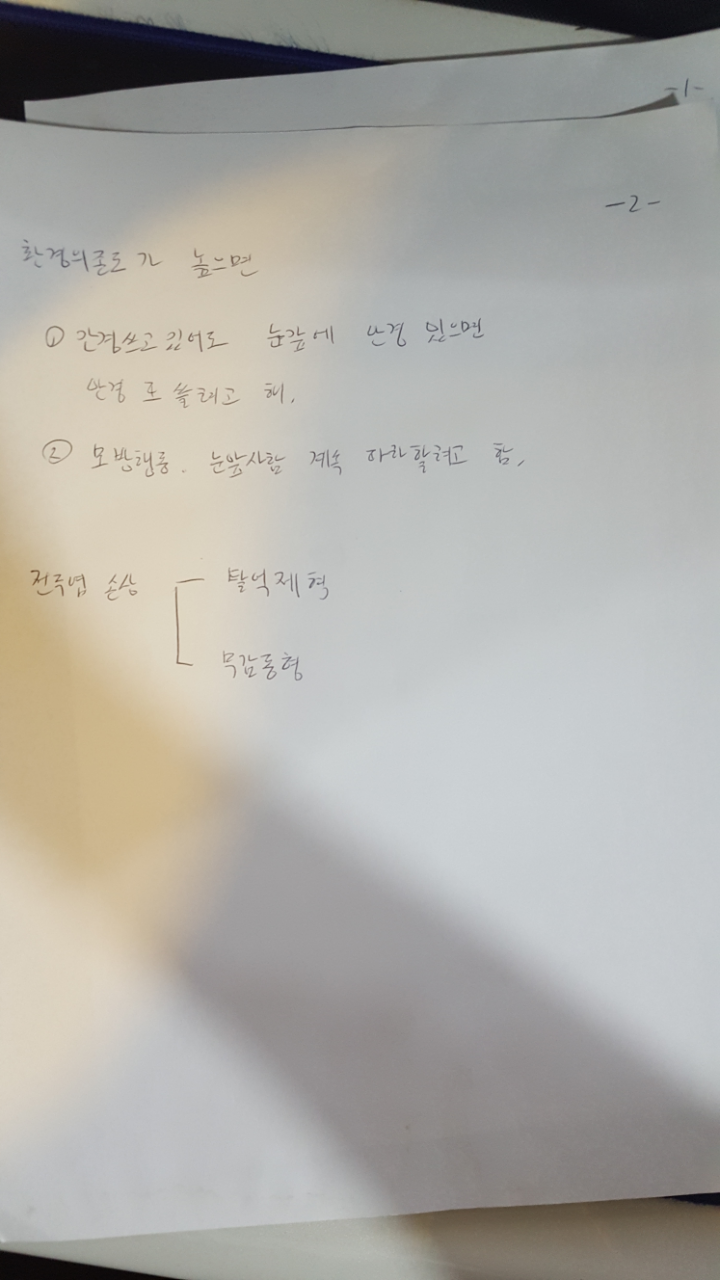 -1-
-2-
환경의존도가 높으면
① 안경쓰고 있어도 눈앞에 안경 있으면
안경 또 쓸려고 해.
② 모방행동. 눈앞사람 계속 따라할려고 함.
전두엽 손상 탈억제형
무감동형